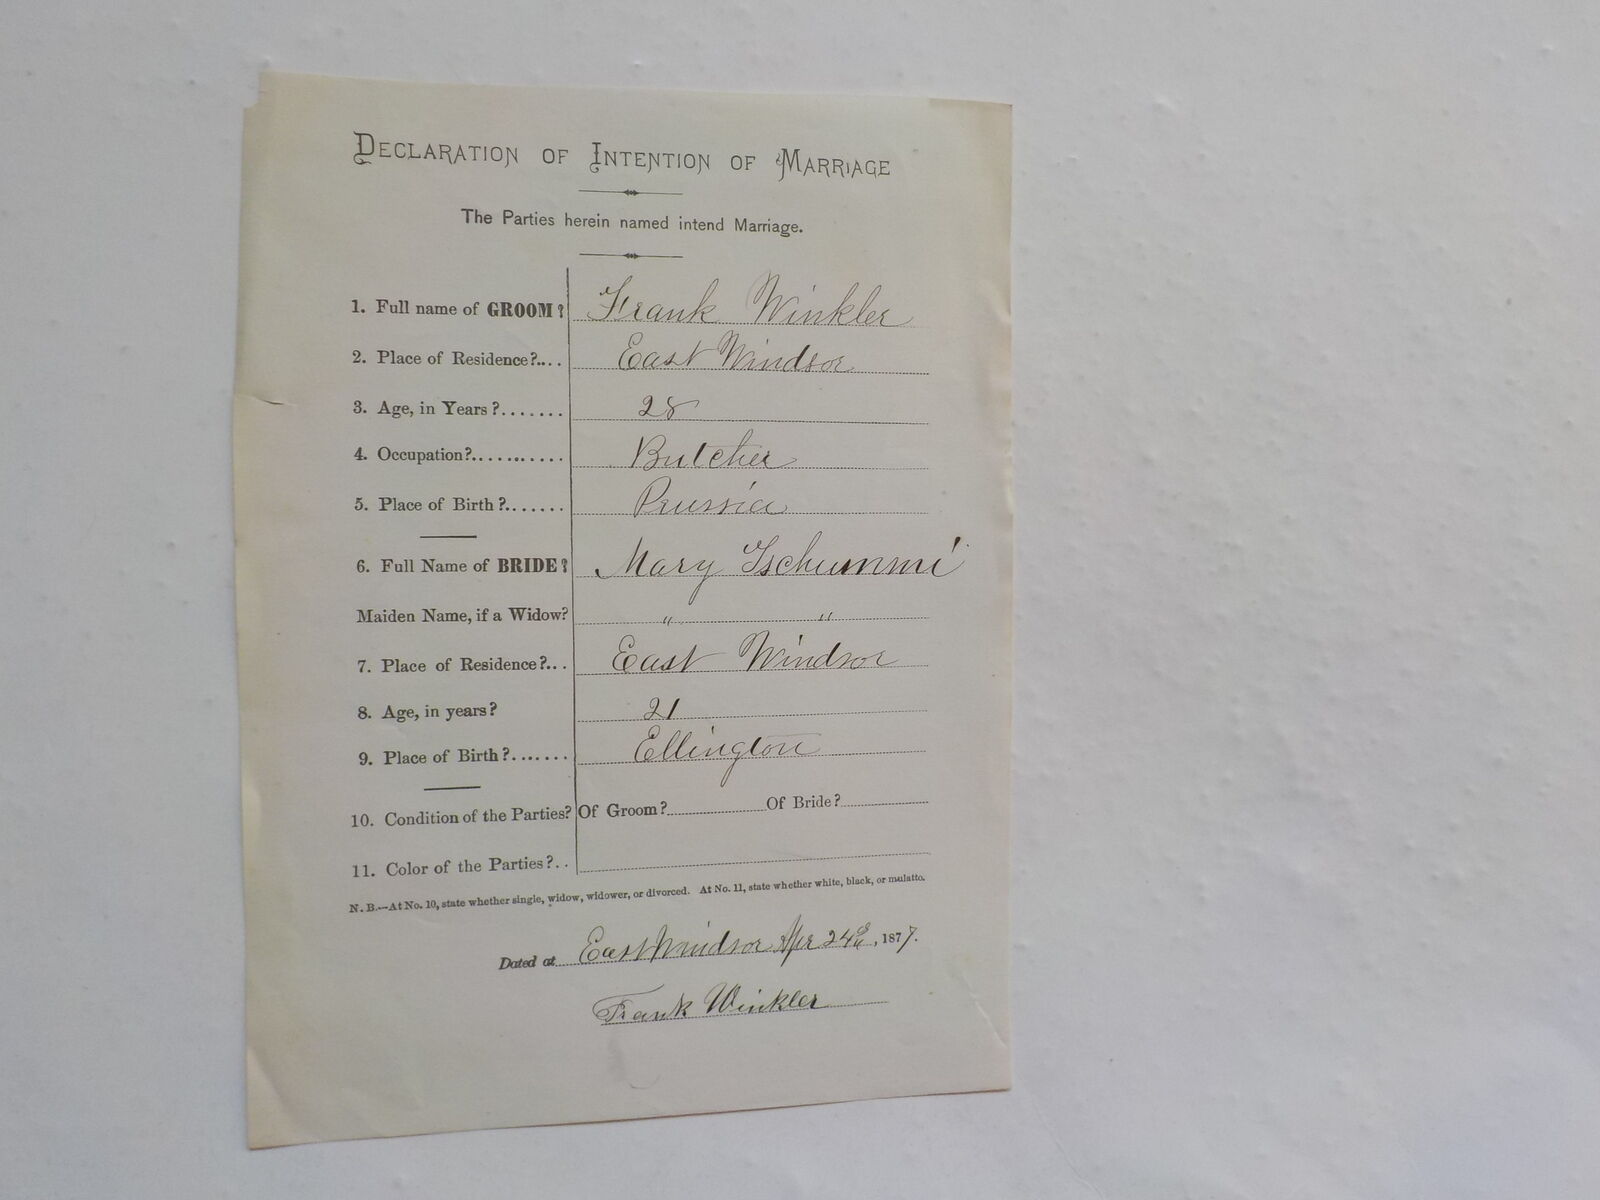 DECLARATION OF INTENTION OF MARRIAGE
The Parties herein named intend Marriage.
1. Full name of GROOM? Frank Winkler
2. Place of Residence?.... East Windsor
3. Age, in Years?....... 28
4. Occupation?.......... Butcher
5. Place of Birth?....... Prussia
6. Full Name of BRIDE? Mary Tschummi
Maiden Name, if a Widow? " "
7. Place of Residence?... East Windsor
8. Age, in years? 21
9. Place of Birth?....... Ellington
10. Condition of the Parties? Of Groom? Of Bride?
11. Color of the Parties?..
N. B.—At No. 10, state whether single, widow, widower, or divorced. At No. 11, state whether white, black, or mulatto.
Dated at East Windsor Apr 24th, 1877.
Frank Winkler